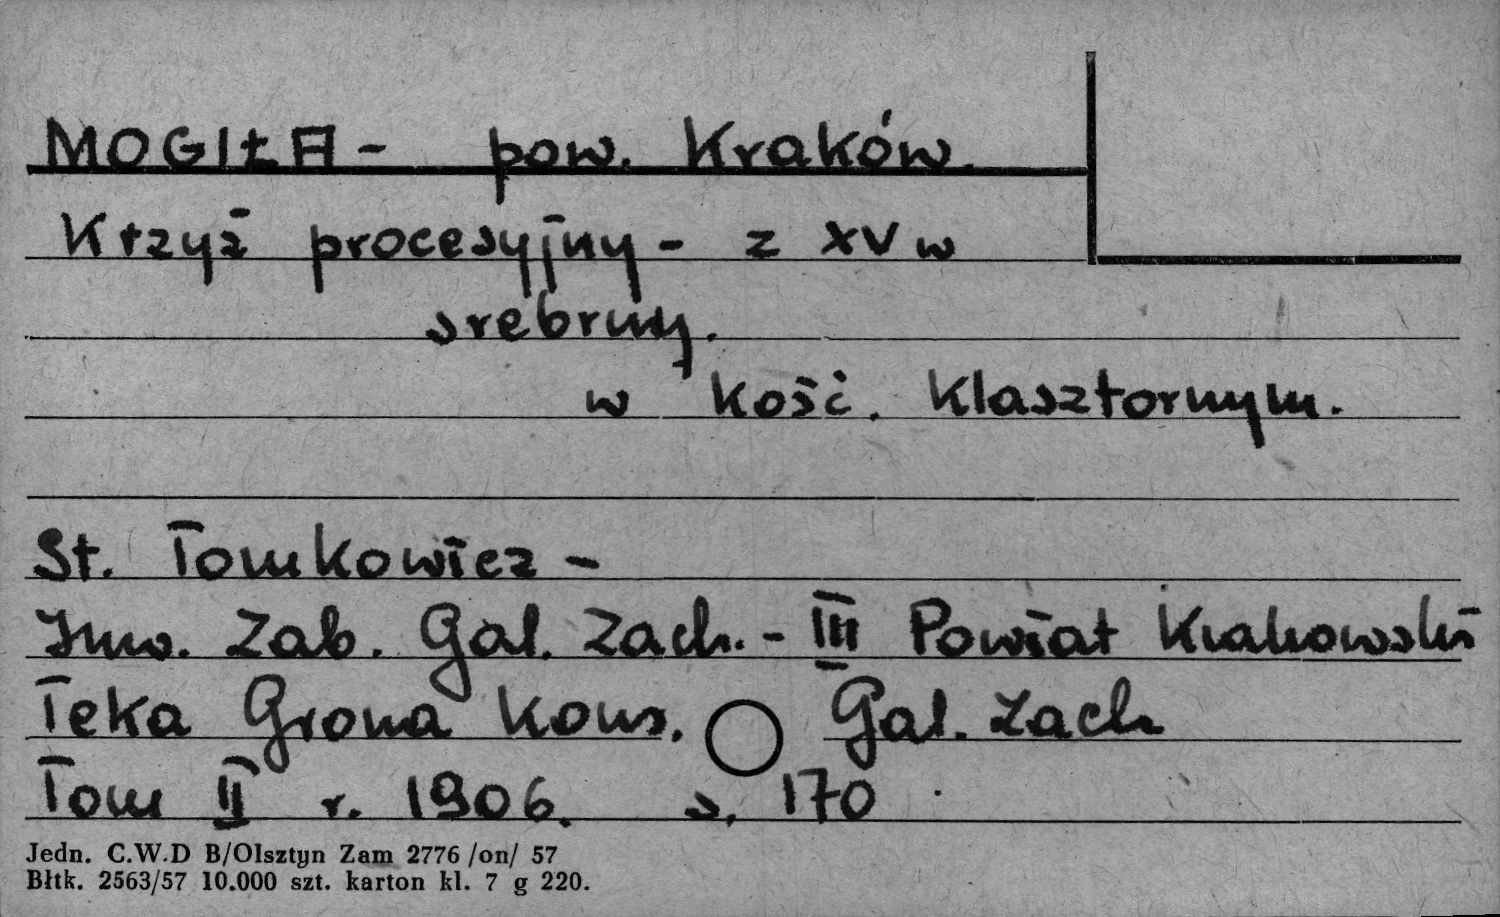 MOGIŁA - pow. Kraków.
Krzyż procesyjny - z XV w
srebrny.
w kość. Klasztornym.
St. Tomkowicz -
Inw. Zab. Gal. Zach. - III Powiat Krakowski
Teka Grona Kons. Gal. Zach
Tom II r. 1906. s. 170
Jedn. C.W.D B/Olsztyn Zam 2776 /on/ 57
Błtk. 2563/57 10.000 szt. karton kl. 7 g 220.